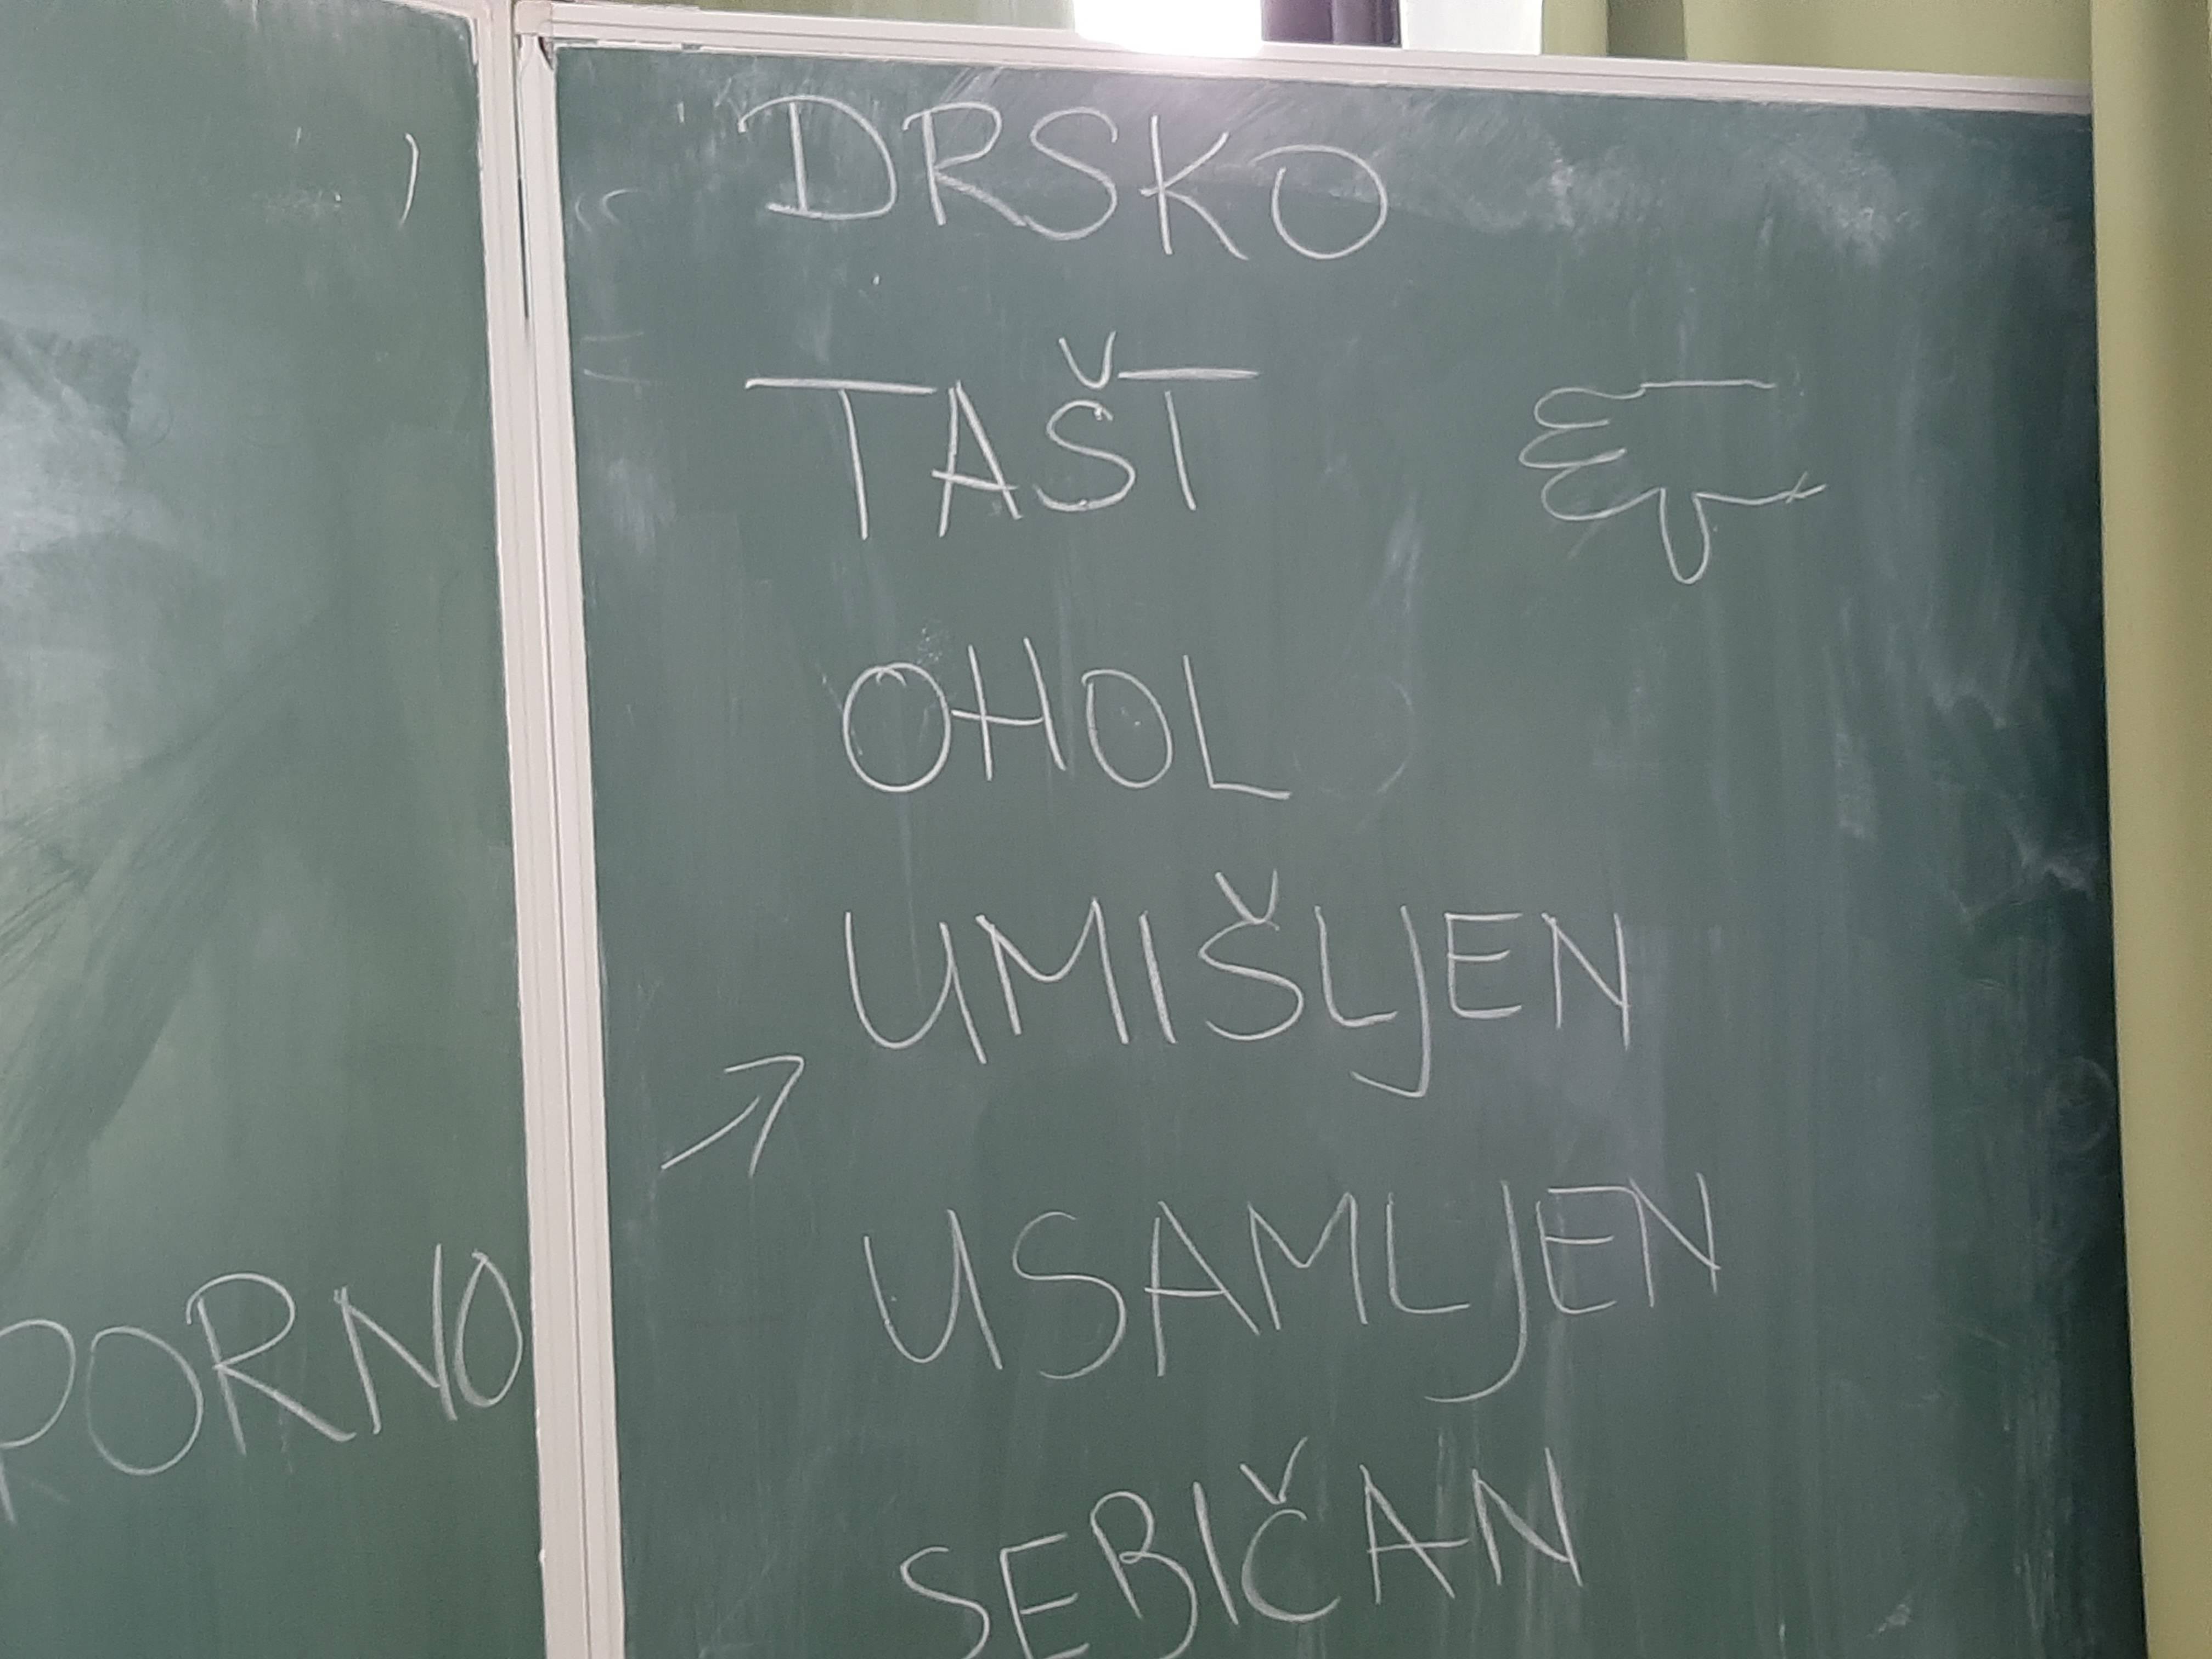 DRSKO
TAŠT
OHOL
UMIŠLJEN
USAMLJEN
PORNO
SEBIČAN